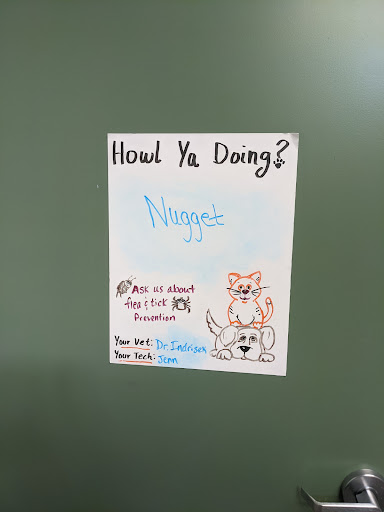 Howl Ya Doing?
Nugget
Ask us about
flea & tick
Prevention
Your Vet: Dr. Indrisek
Your Tech: Jenn